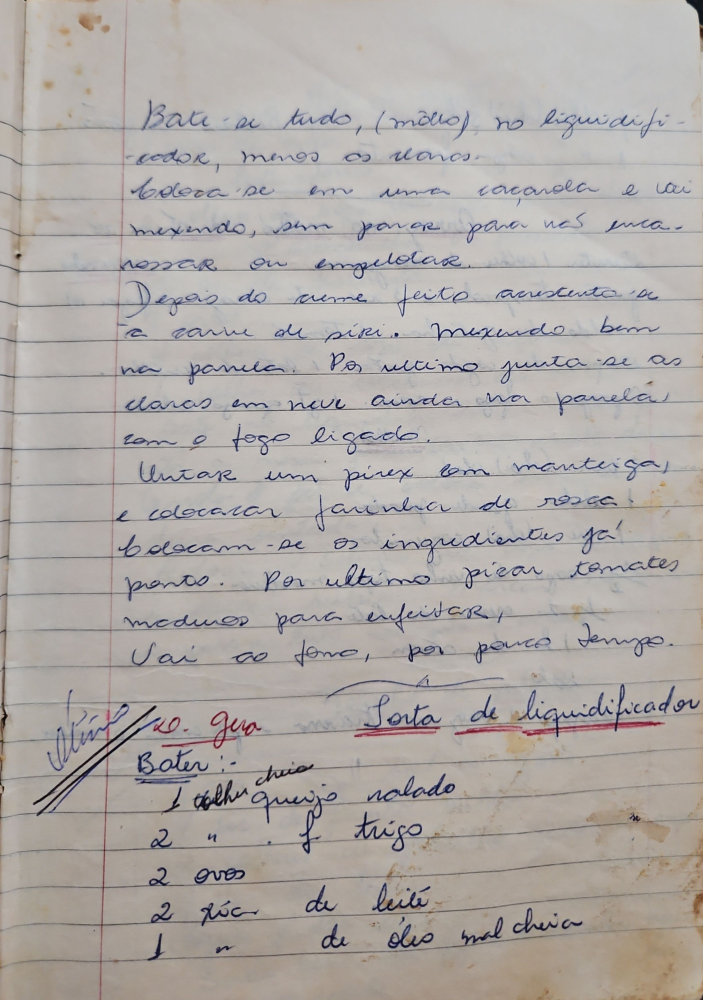 Bate-se tudo, (môlho) no liquidifi-
-cador, menos as claras.
Coloca-se em uma caçarola e vai
mexendo, sem parar para não enca-
rossar ou empelotar.
Depois do creme feito acrescenta-se
a carne de siri. Mexendo bem
na panela. Por ultimo junta-se as
claras em neve ainda na panela,
com o fogo ligado.
Untar um pirex com manteiga,
e colocar farinha de rosca.
Colocam-se os ingredientes já
ponto. Por ultimo picar tomates
maduros para enfeitar,
Vai ao forno, por pouco tempo.
Torta de liquidificador
Bater:-
1 colher cheia queijo ralado
2 " . f trigo "
2 ovos
2 xíc. de leite
1 " de óleo mal cheia